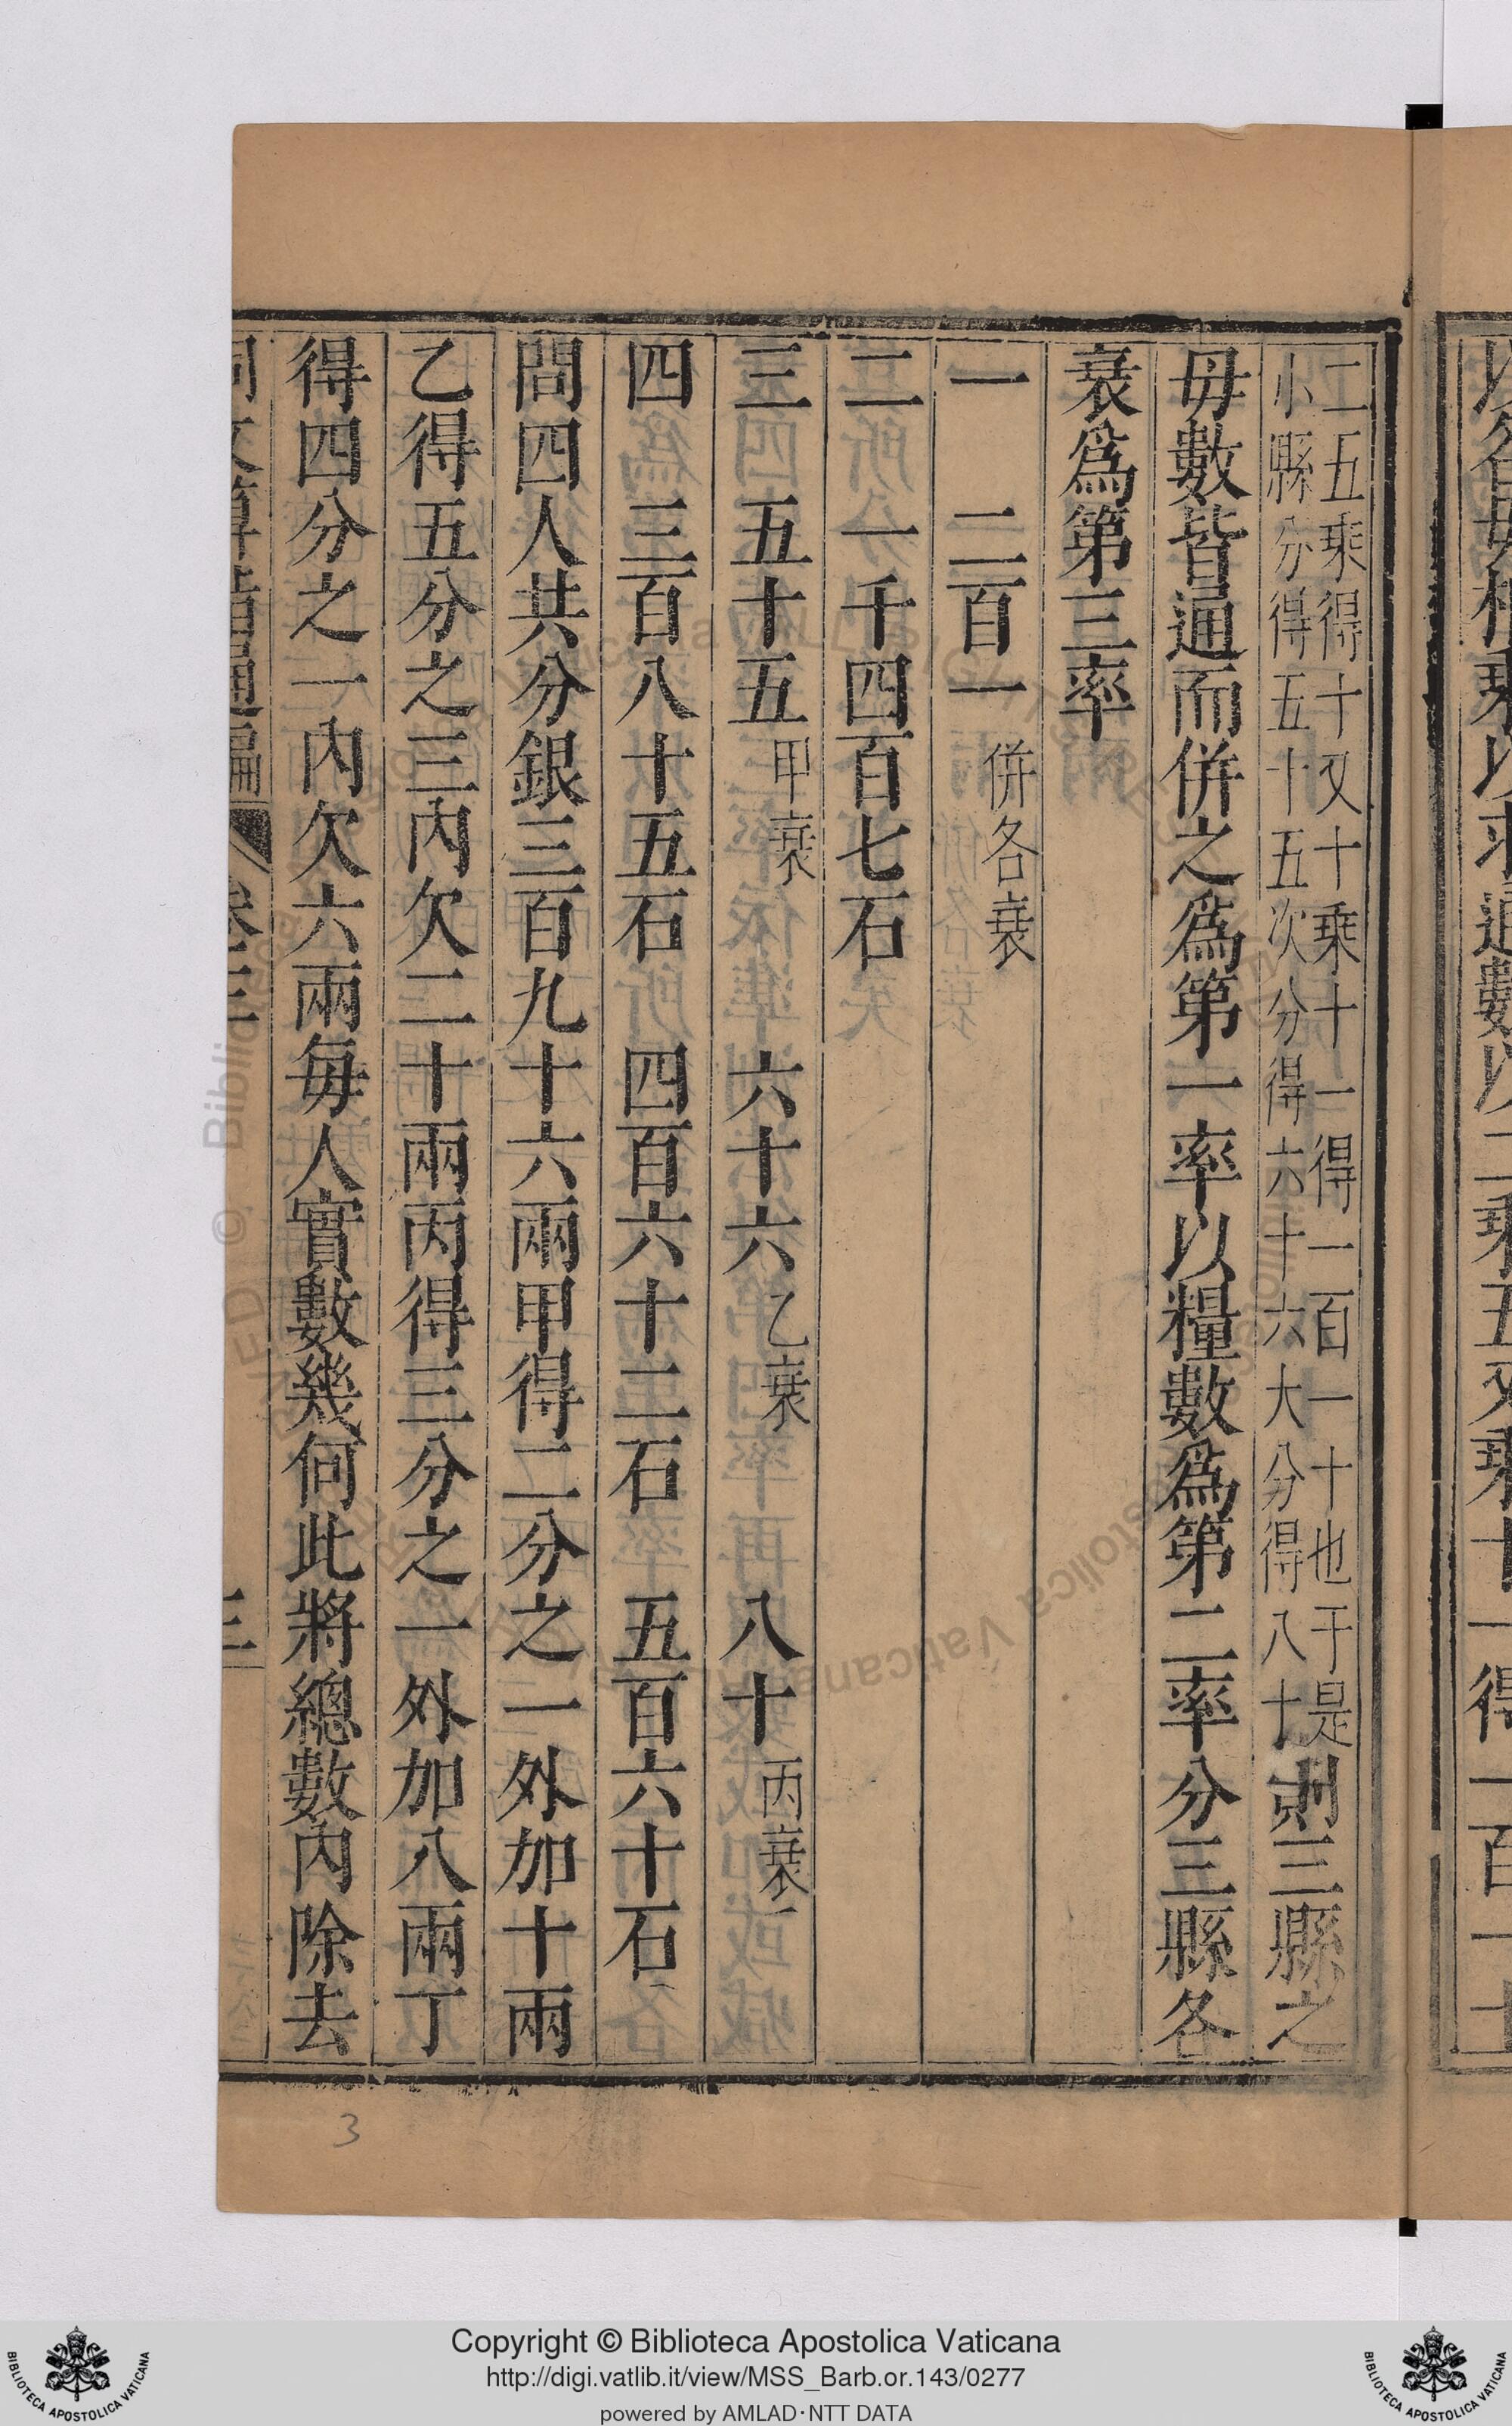 二五乘得十又十乘十一得一百一十也于是
小縣分得五十五次分得六十六大分得八十
則三縣之
毋數皆通而併之為第一率以糧數為第二率分三縣各
衰為第三率
一 二百一 併各衰
二 一千四百七石
三 五十五 甲衰 六十六 乙衰 八十 丙衰
四 三百八十五石 四百六十二石 五百六十石
問四人共分銀三百九十六兩甲得二分之一外加十兩
乙得五分之三內欠二十兩丙得三分之一外加八兩丁
得四分之一內欠六兩每人實數幾何此將總數內除去
同文算指通編 卷三 三
3
Copyright © Biblioteca Apostolica Vaticana
http://digi.vatlib.it/view/MSS_Barb.or.143/0277
powered by AMLAD·NTT DATA
BIBLIOTECA APOSTOLICA VATICANA
BIBLIOTECA APOSTOLICA VATICANA